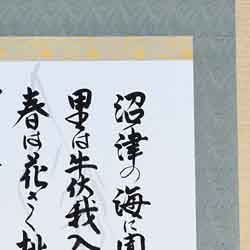 沼津の海に囲
里は牛伏我入
春は花さく桃